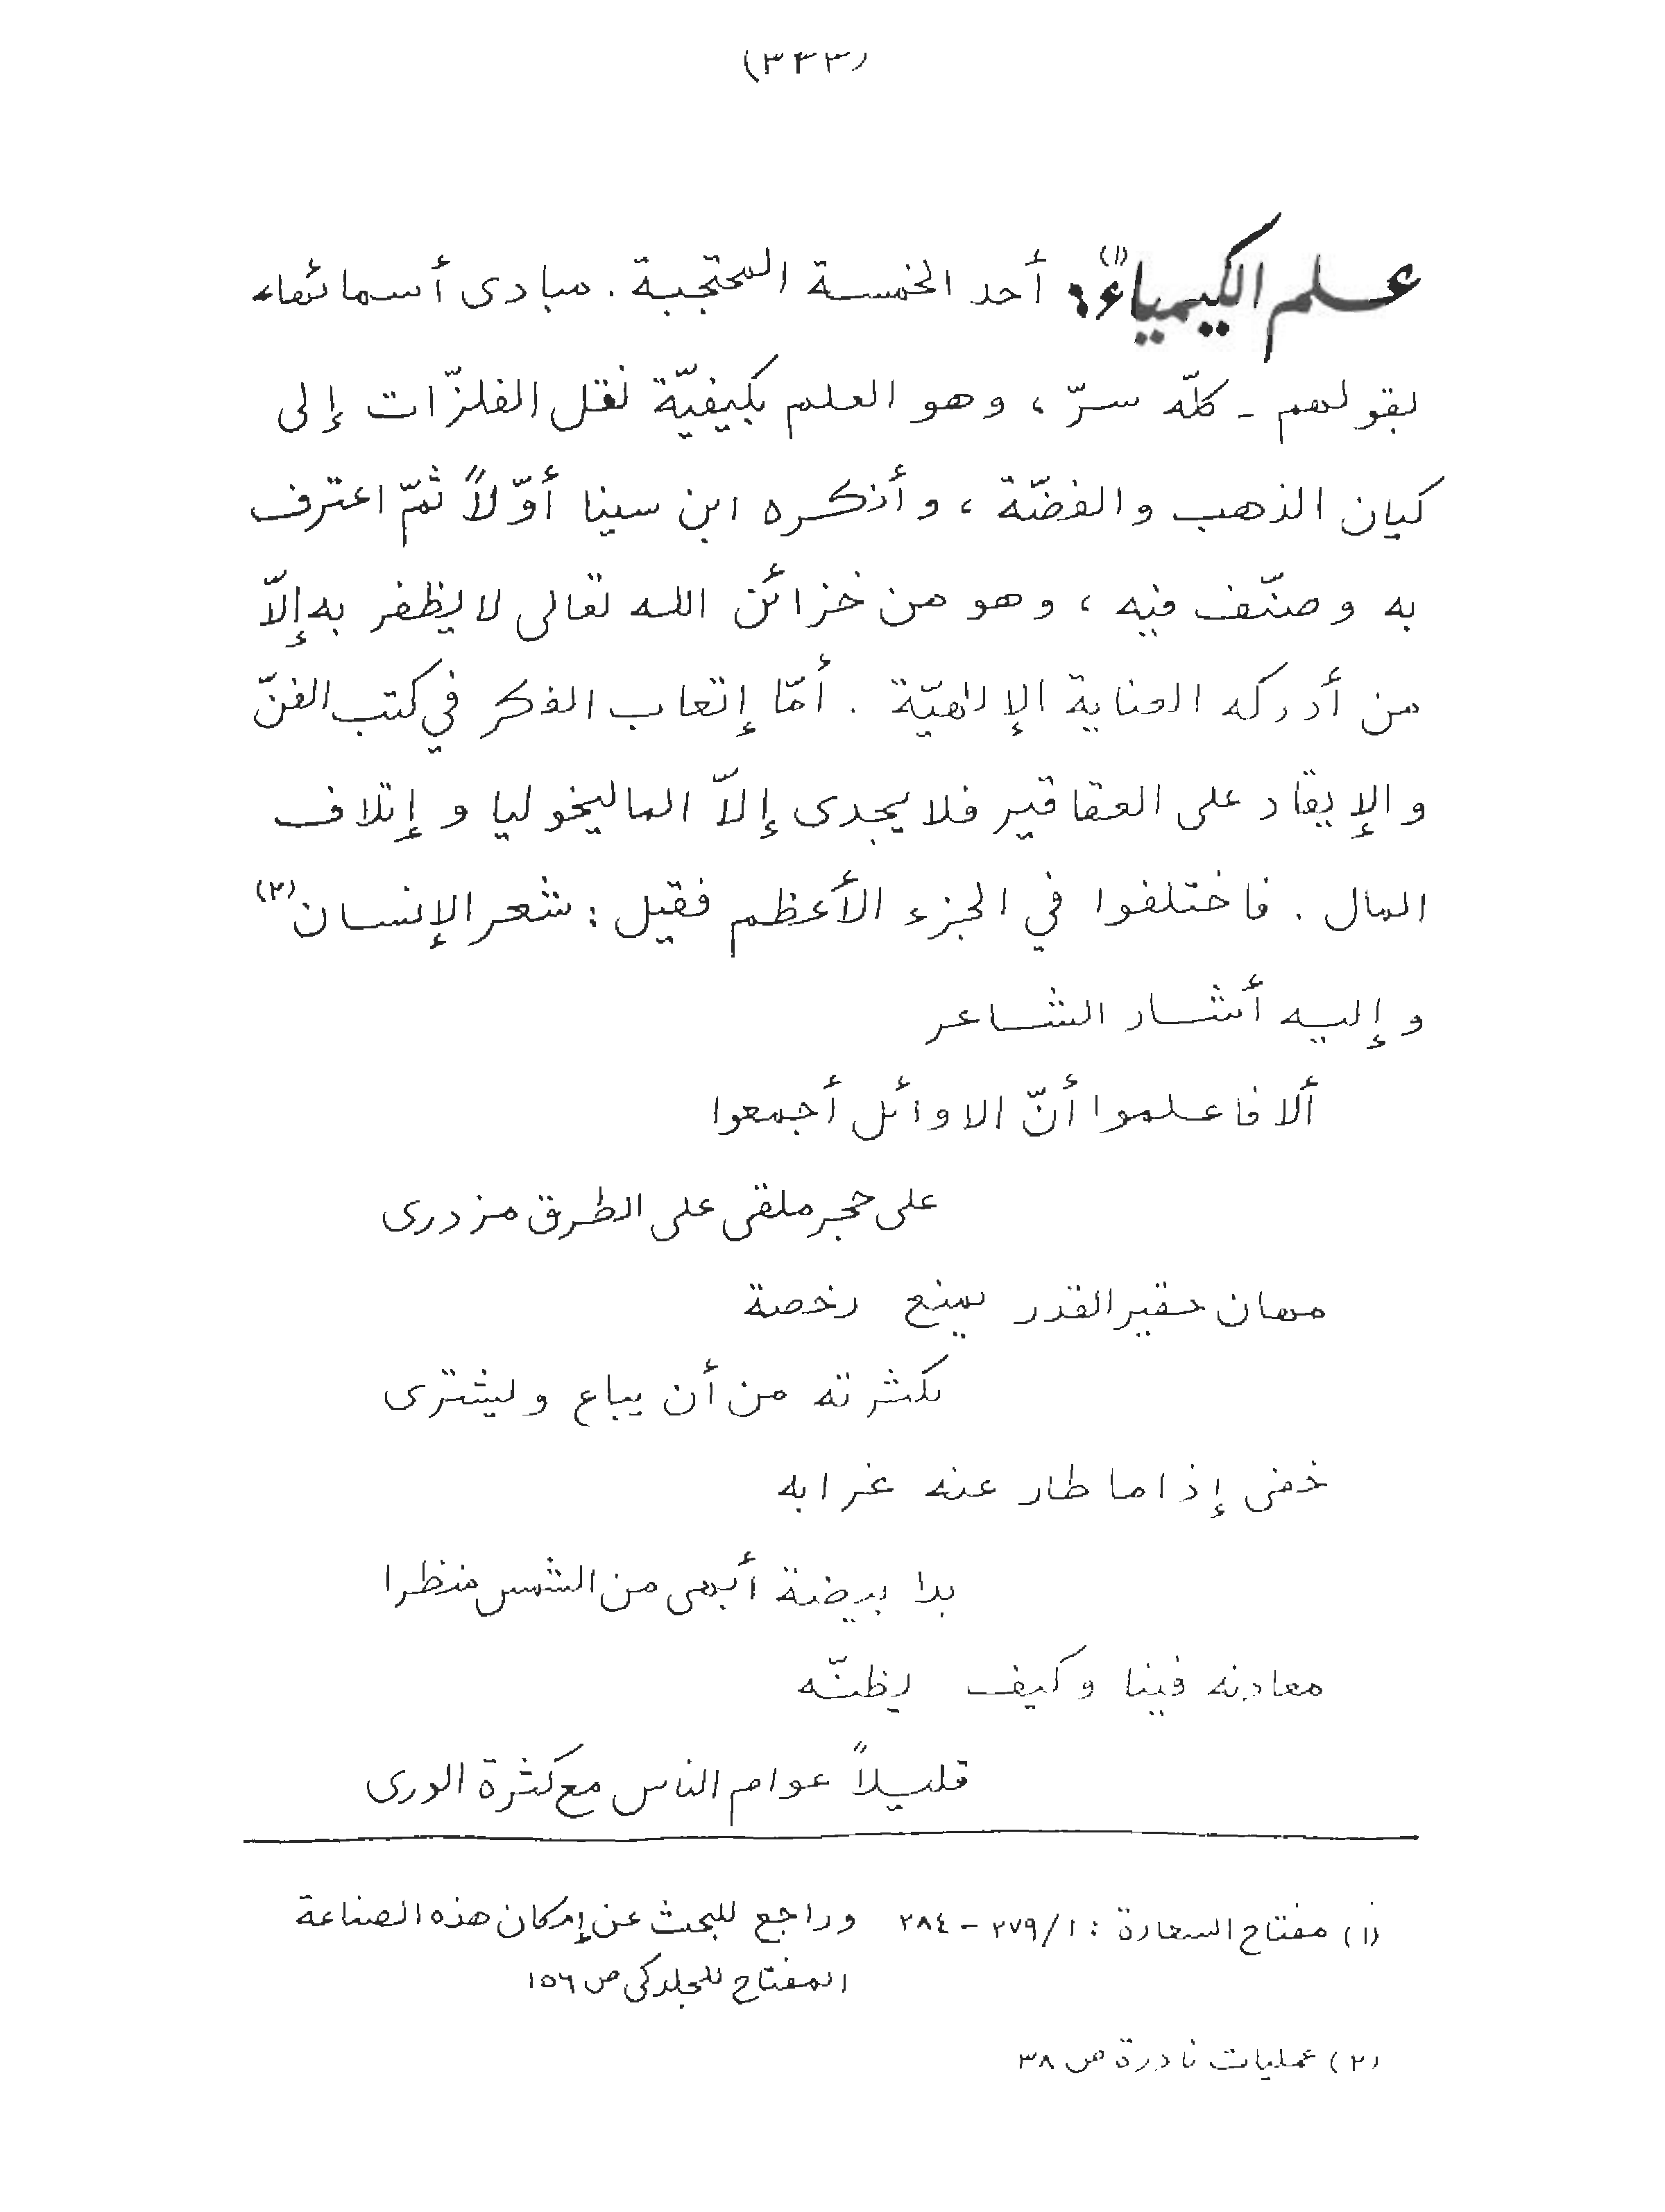 (٣٣٣)
علم الكيمياء(١)؛ أحد الخمسة المحتجبة. مبادى أسمائها،
بقولهم - كلّه سرّ، وهو العلم بكيفيّة نقل الفلزّات إلى
كيان الذهب والفضّة، وأنكره ابن سينا أوّلاً ثمّ اعترف
به وصنّف فيه، وهو من خزائن الله تعالى لا يظفر به إلّا
من أدركه العناية الإلهيّة. أمّا إتعاب الفكر في كتب الفنّ
والإيقاد على العقاقير فلا يجدى إلّا الماليخوليا وإتلاف
المال. فاختلفوا في الجزء الأعظم فقيل: شعر الإنسان(٢)
وإليه أشار الشاعر
ألا فاعلموا أنّ الاوائل أجمعوا
على حجر ملقى على الطرق مزدرى
مهان حقير القدر يمنع رخصة
بكثرته من أن يباع وليشترى
خفى إذا ما طار عنه غرابه
بدا بيضة أبهى من الشمس منظرا
معادنه فينا وكيف يظنّه
قليلاً عوام الناس مع كثرة الورى
(١) مفتاح السعادة: ١/٢٧٩ - ٢٨٤ وراجع للبحث عن إمكان هذه الصناعة
المفتاح للجلدكى ص ١٥٦
(٢) عمليات نادرة ص ٣٨